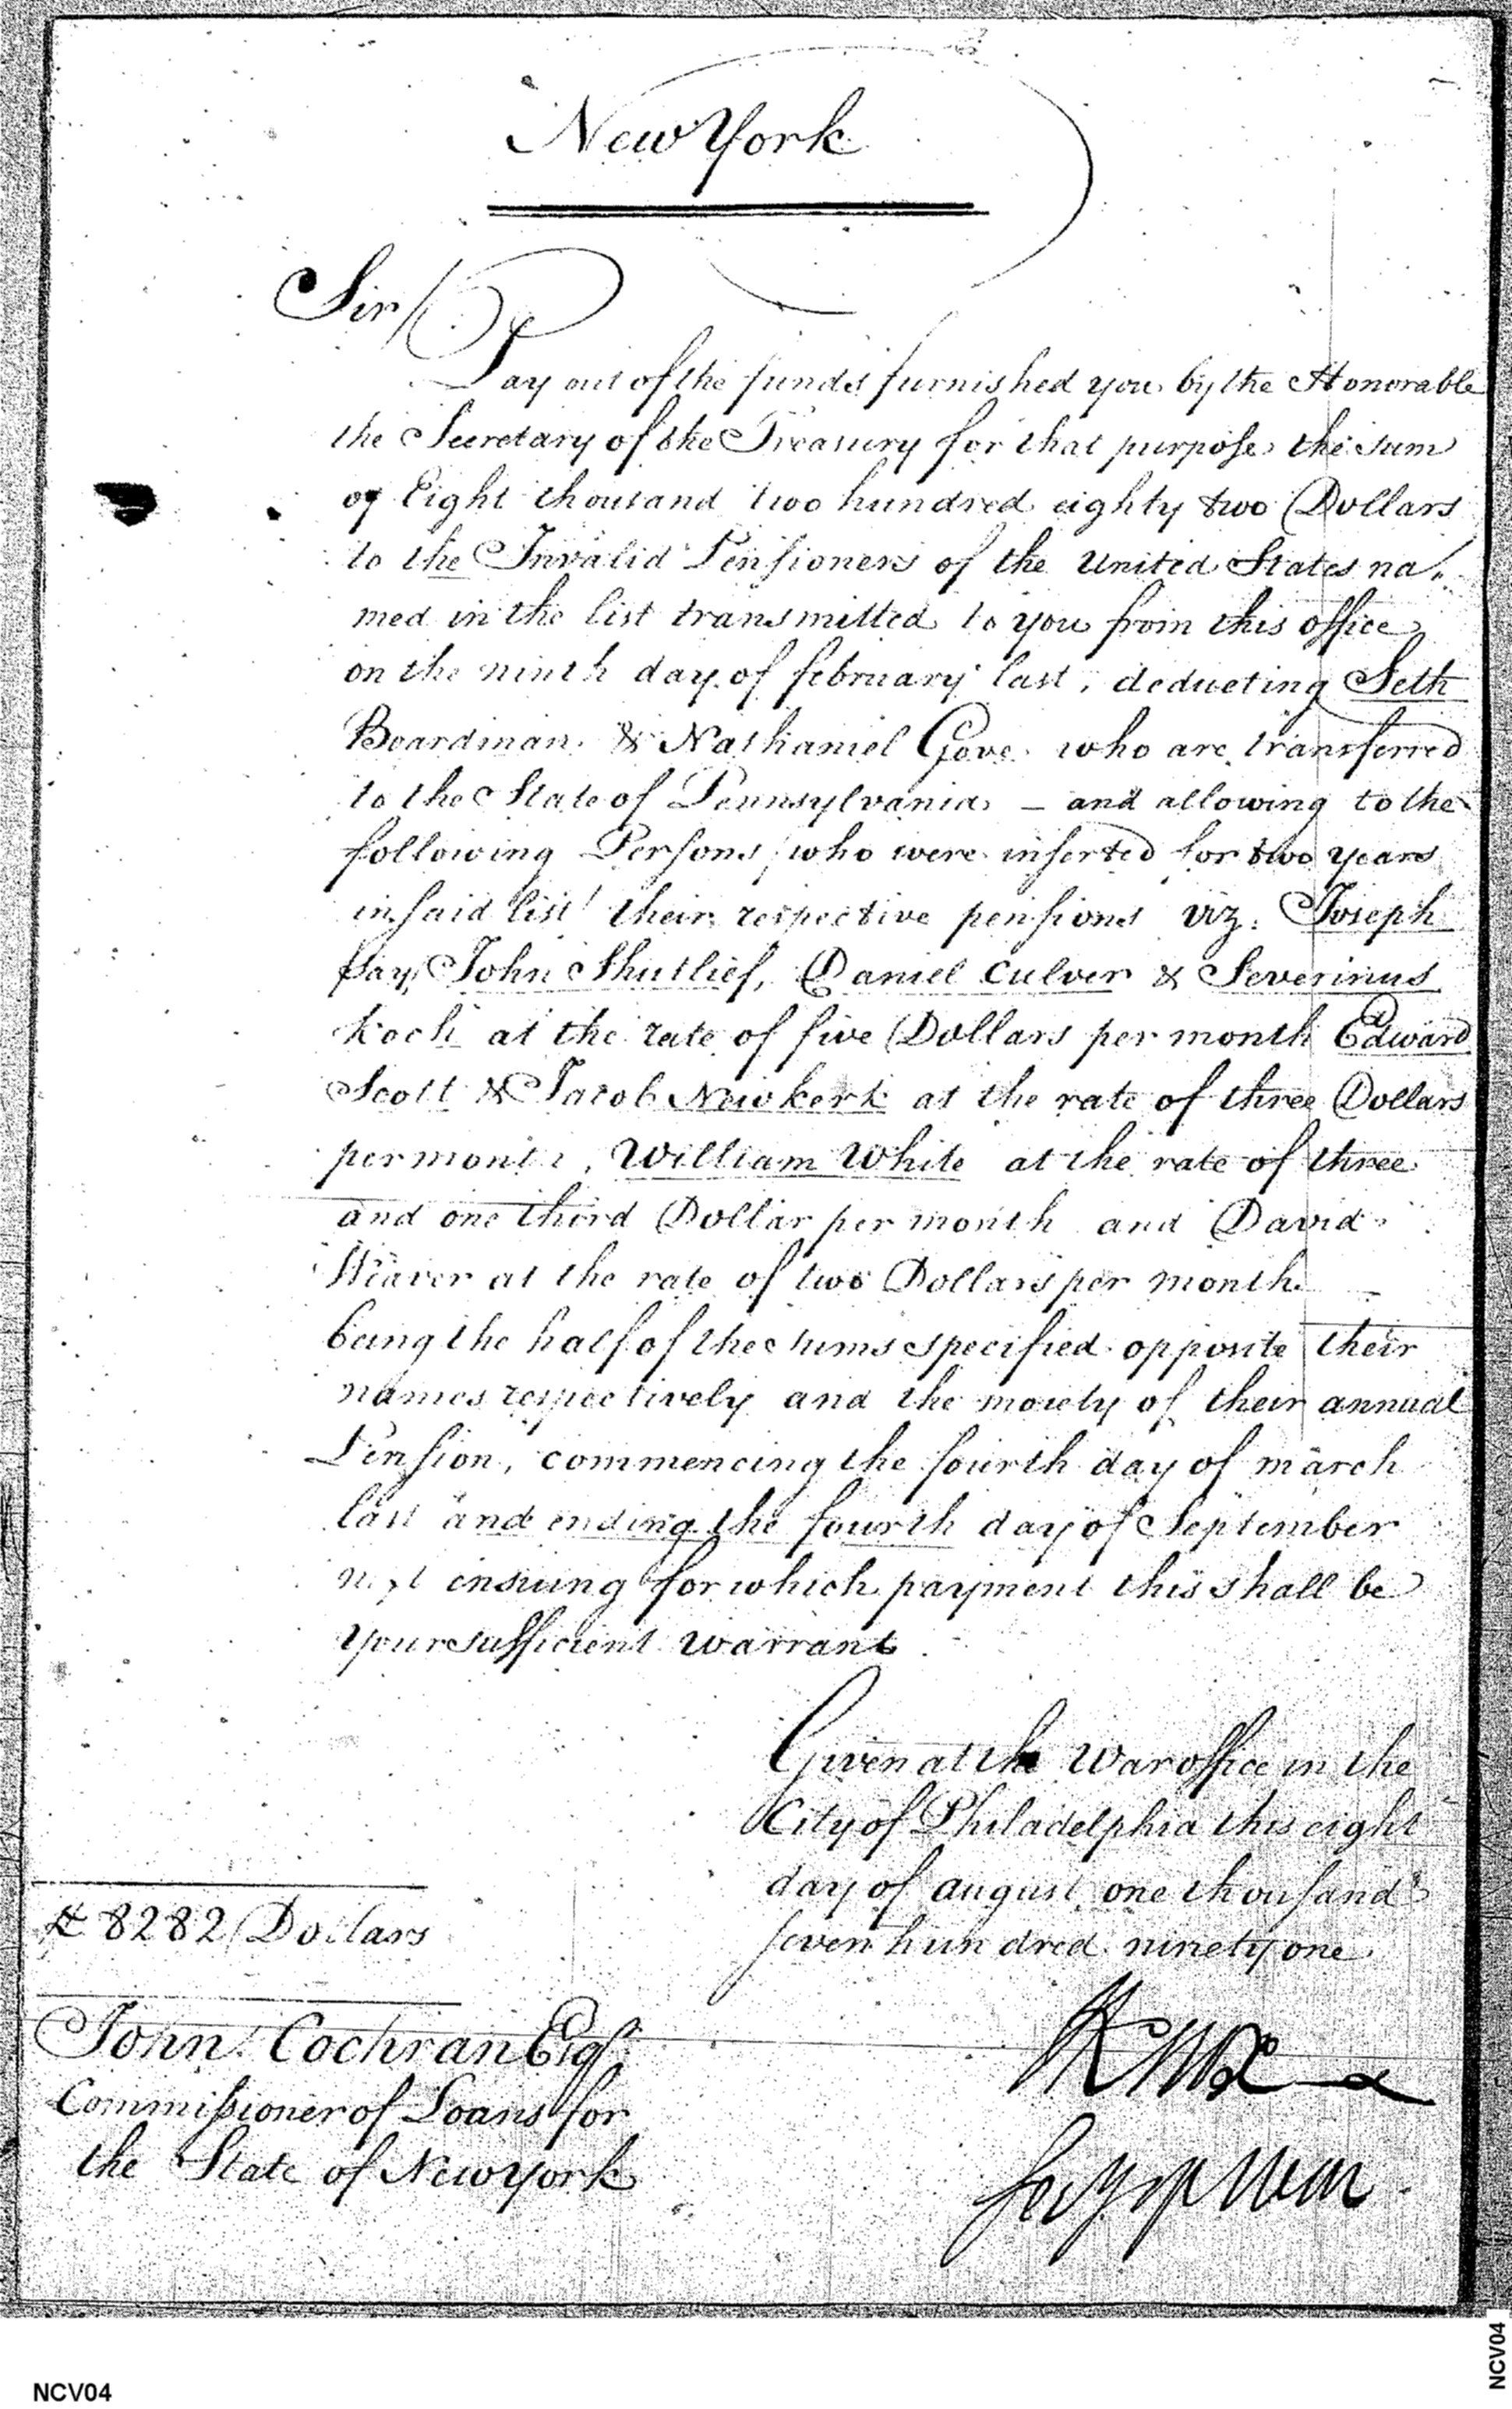 New York
Sir/
Pay out of the funds furnished you by the Honorable
the Secretary of the Treasury for that purpose the sum
of Eight thousand two hundred eighty two Dollars
to the Invalid Pensioners of the United States na
med in the list transmitted to you from this office
on the ninth day of february last, deducting Seth
Boardman & Nathaniel Gove who are transferred
to the State of Pennsylvania – and allowing to the
following Persons, who were inserted for two years
in said list their respective pensions viz. Joseph
John Shutlief, Daniel Culver & Severinus
Koch at the rate of five Dollars per month Edward
Scott & Jacob Newkerk at the rate of three Dollars
per month, William White at the rate of three
and one third Dollar per month and David
Weaver at the rate of two Dollars per month
being the half of the sums specified opposite their
names respectively and the moiety of their annual
Pension, commencing the fourth day of march
last and ending the fourth day of September
next ensuing for which payment this shall be
your sufficient warrant
Given at the War office in the
City of Philadelphia this eight
day of august one thousand
seven hundred ninety one
8282/Dollars
John Cochran Esqr
Commissioner of Loans for
the State of New york
HKnox
Secy of War
NCV04
NCV04